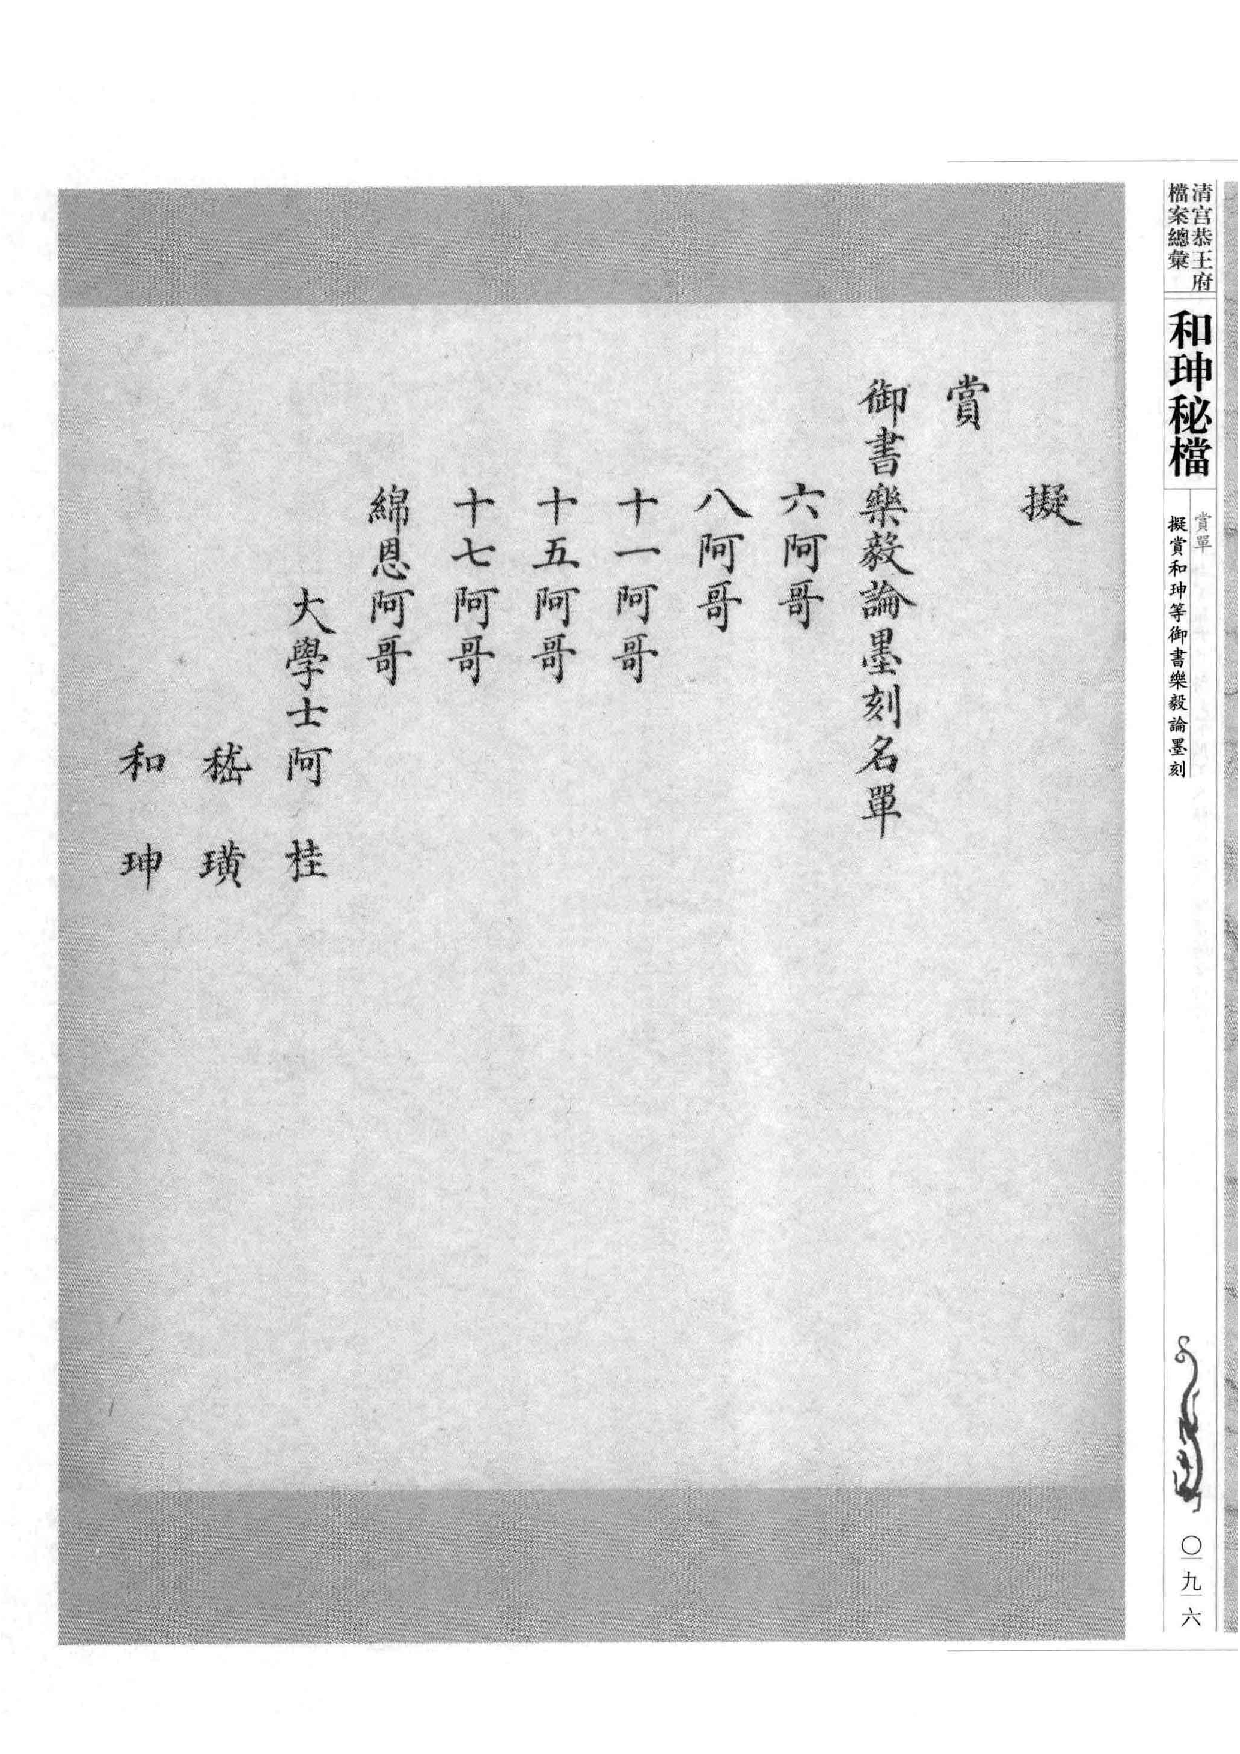 清宮恭王府
檔案總彙
和珅秘檔
賞單
擬賞和珅等御書樂毅論墨刻
擬
賞
御書樂毅論墨刻名單
六阿哥
八阿哥
十一阿哥
十五阿哥
十七阿哥
綿恩阿哥
大學士阿桂
嵇璜
和珅
〇九六